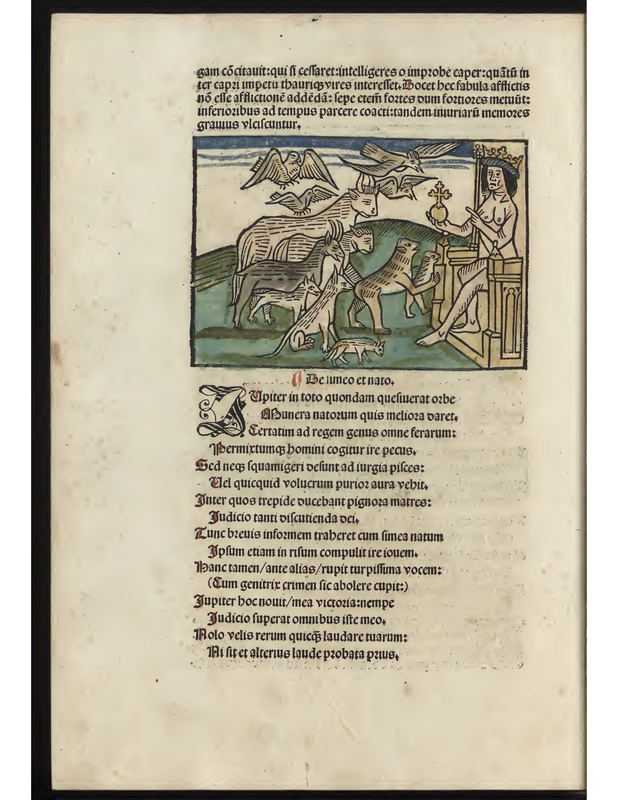 gam cōcitauit:qui si cessaret:intelligeres o improbe caper:quātū in
ter capri impetū thauriqȝ vires interesset. Docet hec fabula afflictis
nō esse afflictionē addēdā: sepe eteī fortes dum fortiores metuūt:
inferioribus ad tempus parcere coacti:tandem iniuriarū memores
grauius vlciscuntur.
De iuneo et nato.
IUpiter in toto quondam quesiuerat orbe
Munera natorum quis meliora daret.
Certatim ad regem genus omne ferarum:
Permixtumqȝ homini cogitur ire pecus.
Sed neqȝ squamigeri desunt ad iurgia pisces:
Uel quicquid volucrum purior aura vehit.
Inter quos trepide ducebant pignora matres:
Judicio tanti discutienda dei.
Tunc breuis informem traheret cum simea natum
Ipsum etiam in risum compulit ire iouem.
Hanc tamen/ante alias/rupit turpissima vocem:
(Cum genitrix crimen sic abolere cupit:)
Jupiter hoc nouit/mea victoria:nempe
Judicio superat omnibus iste meo.
Nolo velis rerum quicqȝ laudare tuarum:
Ni sit et alterius laude probata prius.